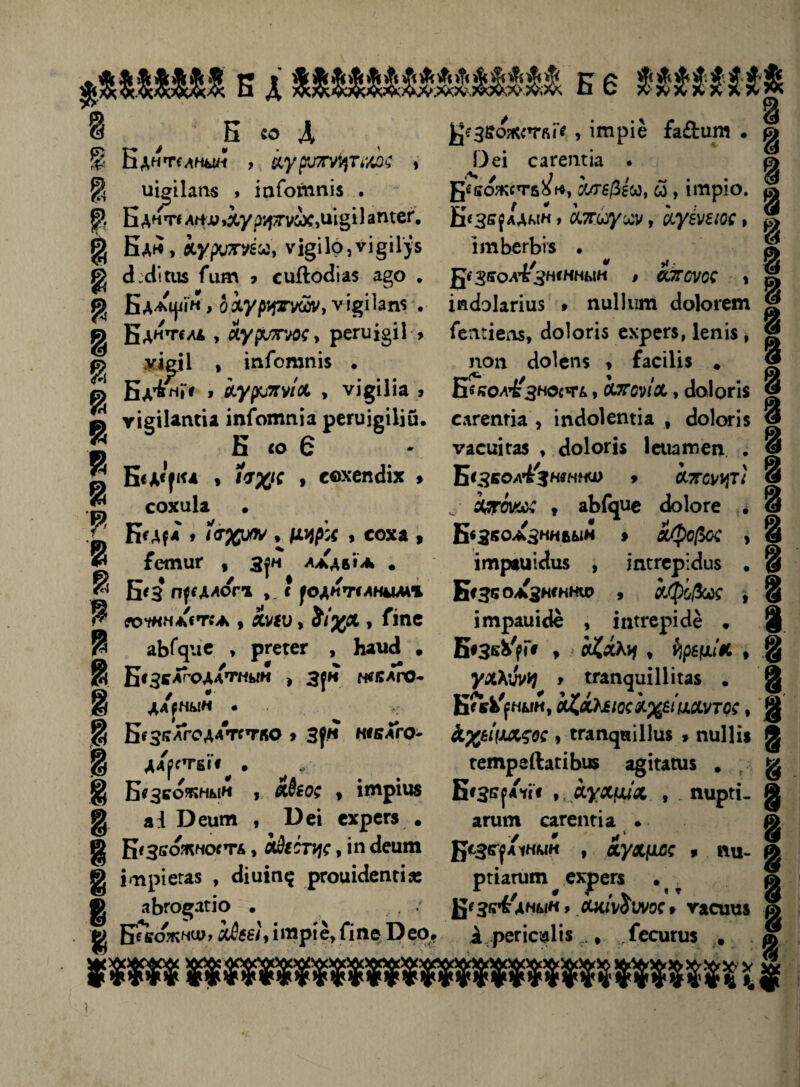 Б Д Б Е
Б со Д
Бдительный , ἀγρυπνητικὸς ,
uigilans , infomnis .
Бдительнѡ,ἀγρυπνῶς,uigilanter.
Бдю, ἀγρυπνέω, vigilo,vigilijs
ditus fum , cuftodias ago .
Бдѧщїй, ὁ ἀγρυπνῶν, vigilans .
Бдитель , ἄγρυπνος, peruigil ,
vigil , infomnis .
Бдѣнїе , ἀγρυπνία , vigilia ,
vigilantia infomnia peruigiliũ.
Б со Е
Бедерка , ἰσχὶς , coxendix ,
coxula .
Бедра , ἰσχίον , μηρὸς , coxa ,
femur , зри лѧдвїѧ .
Без̾ предлогъ , с родительнымъ
сочинѧетсѧ , ἄνευ, δίχα , fine
abfque , preter , haud .
Безблагодатный , зри неблаго-
дарный .
Безблагодатство , зри неблаго-
дарствїе .
Безбожный , ἄθεος , impius
ad Deum , Dei expers .
Безбожность, ἀθεότης, in deum
impietas , diuinę prouidentiæ
abrogatio .
Безбожнѡ, ἀθεεὶ, impiè, fine Deo.
Безбожствїе , impiè factum .
Dei carentia .
Безбожствꙋю, ἀσεβέω, ῶ, impio.
Безбрадый, ἀπώγων, ἀγένειος ,
imberbis .
Безболѣзненный , ἄπονος ,
indolarius , nullum dolorem
fentiens, doloris expers, lenis ,
non dolens , facilis .
Безболѣзность, ἀπονία, doloris
carentia , indolentia , doloris
vacuitas , doloris leuamen .
Безболѣзненнѡ , ἀπονητὶ
ἀπόνως , abfque dolore .
Безбоѧзнивый , ἄφοβος ,
impauidus , intrepidus .
Безбоѧзненнѡ , ἀφόβως ,
impauidè , intrepidè .
Безбꙋрїе , ἀζάλη , ἠρεμία ,
γαλήνη , tranquillitas .
Безбꙋрный, ἀζάλειος ἀχείμαντος ,
ἀχείμαςος , tranquillus , nullis
tempeftatibus agitatus .
Безбрачїе , ἀγαμία , nupti-
arum carentia .
Безбрачный , ἄγαμος , nu-
ptiarum expers .
Безбѣдный, ἀκίνδυνος, vacuus
à periculis , fecurus .